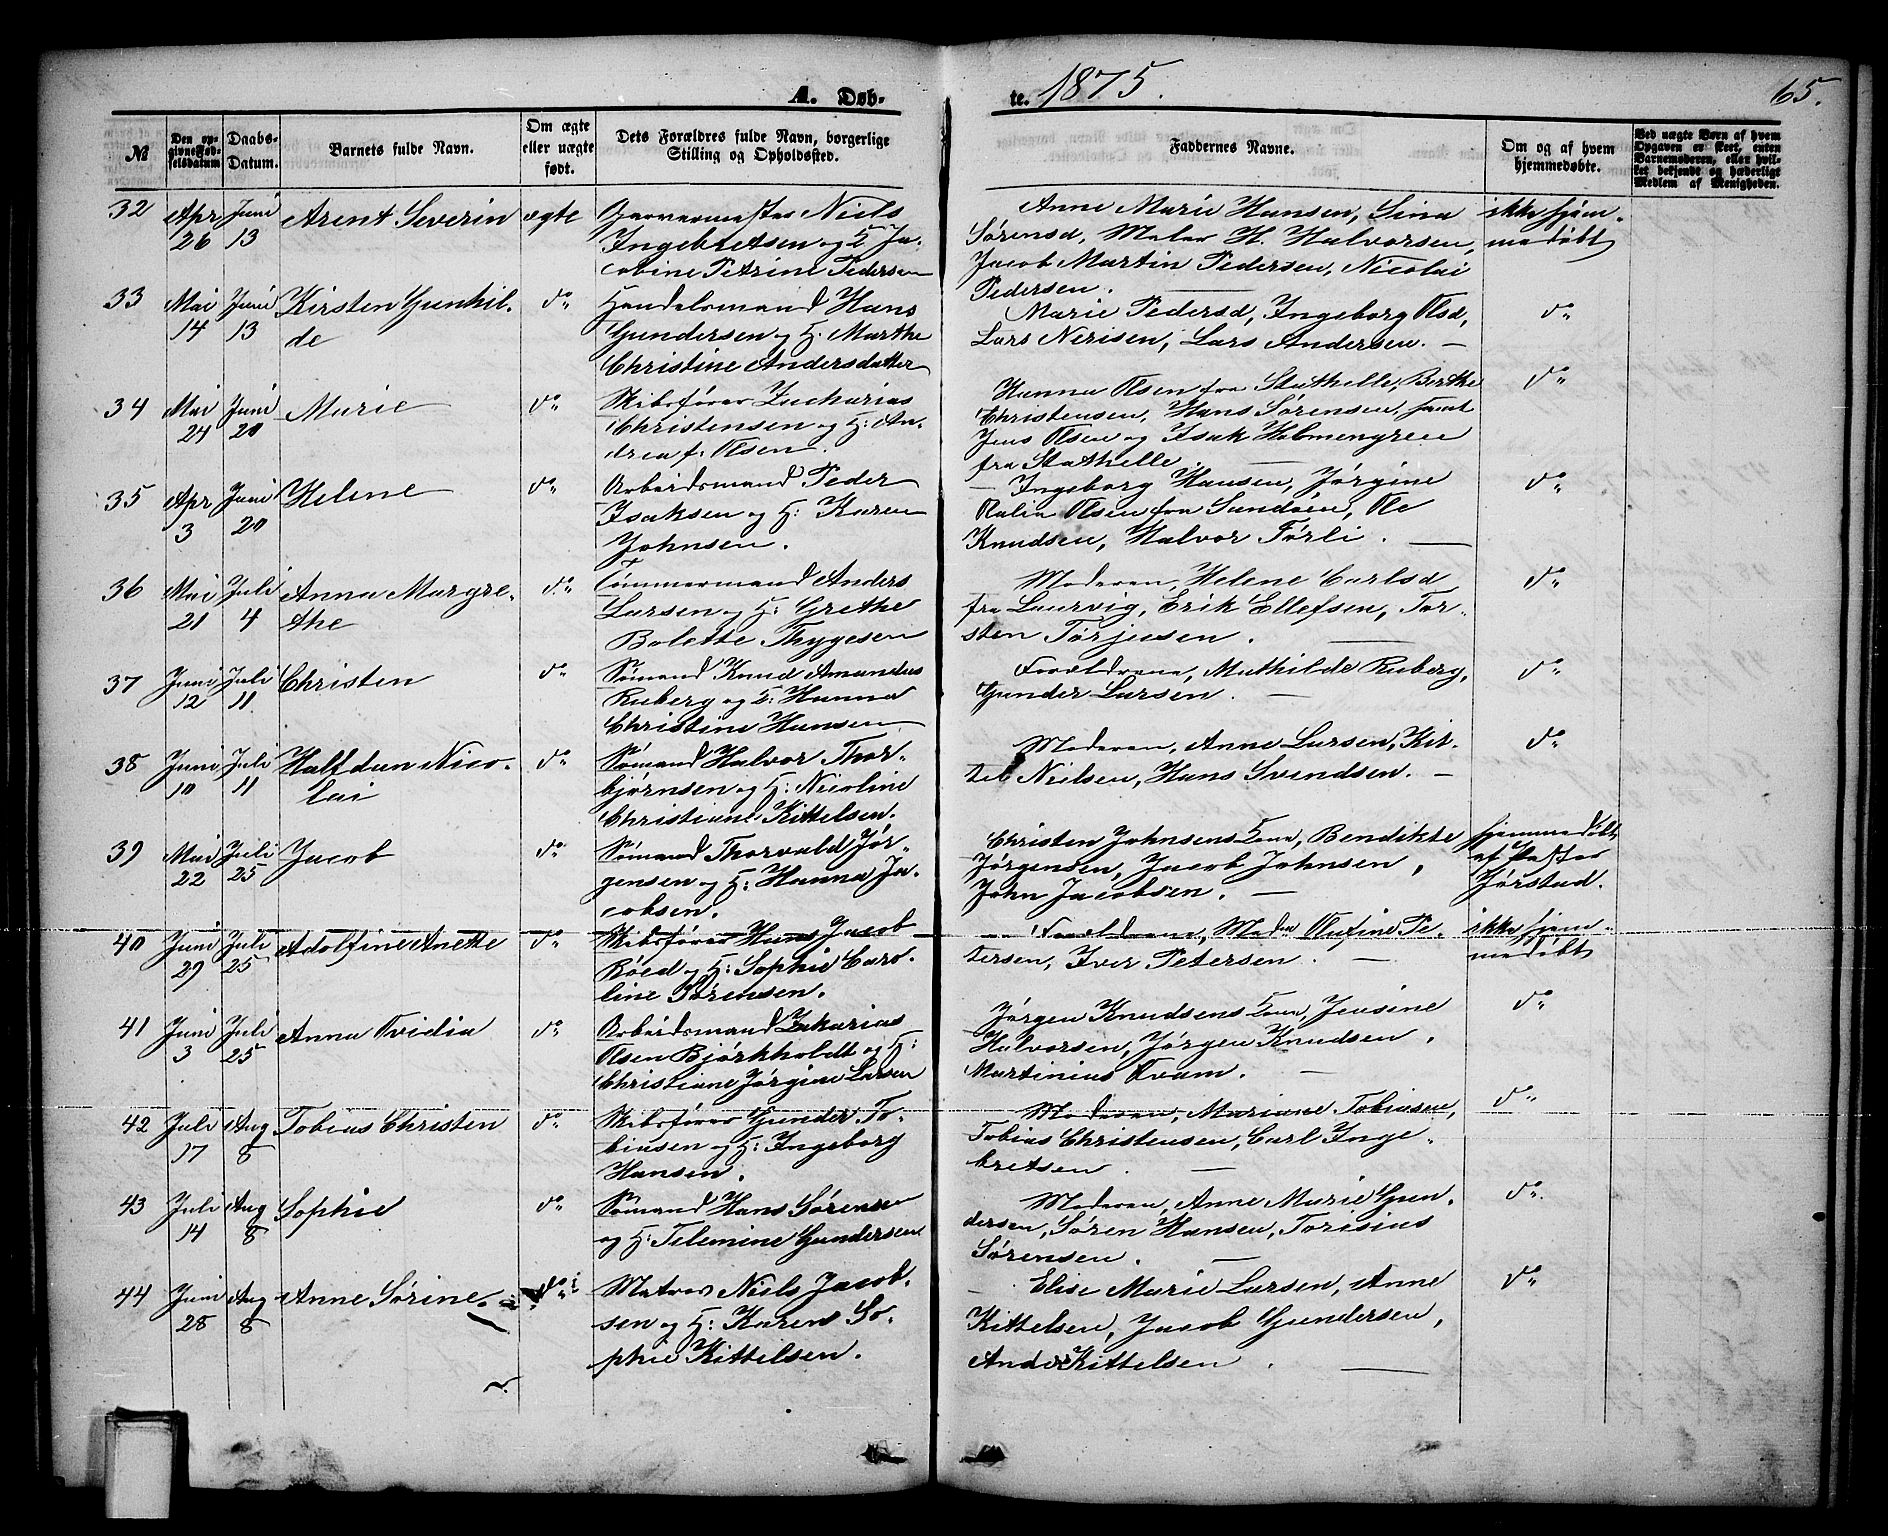 A. Døb-
te. 1875. 65.
№
Den op-
givne Fød-
selsdatum
Daabs-
Datum.
Barnets fulde Navn.
Om ægte
eller uægte
født.
Dets Forældres fulde Navn, borgerlige
Stilling og Opholdssted.
Faddernes Navne.
Om og af hvem
hjemmedøbte.
Ved uægte Børn af hvem
Opgaven er skeet, enten
Barnemoderen, eller hvil-
ket bekjendt og hæderligt
Medlem af Menigheden.
32 Apr 26 Juni 13 Arent Severin ægte
Garvermester Niels
Ingebretsen og H. Ja-
cobine Petrine Pedersen
Anne Marie Hansen, Lina
Sørensd, Maler H. Halvorsen,
Jacob Martin Pedersen, Nicolai
Pedersen.
ikke hjem-
medøbt
33 Mai 14 Juni 13 Kirsten Gunhil-
de
do
Handelsmand Hans
Gundersen og H. Marthe
Christine Andersdatter
Marie Pedersd, Ingeborg Olsd,
Lars Nerisen, Lars Andersen. —
do
34 Mai 24 Juni 20 Marie do
Skibsfører Zacharias
Christensen og H: An-
drea f. Olsen.
Hanna Olsen fra Stathelle, Berthe
Christensen, Hans Sørensen, samt
Jens Olsen og Isak Holmengreen
fra Stathelle. —
do
35 Apr 3 Juni 20 Helene do
Arbeidsmand Peder
Isaksen og H: Karen
Johnsen.
Ingeborg Hansen, Jørgine
Olsen fra Sundøen, Ole
Knudsen, Halvor Førli. —
do
36 Mai 21 Juli 4 Anna Margre-
the
do
Tømmermand Anders
Larsen og H: Grethe
Bolette Thygesen
Moderen, Helene Carlsd
fra Laurvig, Erik Ellefsen, Tor-
sten Torjusen. —
do
37 Juni 12 Juli 11 Christen do
Sømand Knud Amandus
Ruberg og H: Hanna
Christine Hansen
Forældrene, Mathilde Ruberg,
Gunder Larsen. —
do
38 Juni 10 Juli 11 Halfdan Nico-
lai
do
Sømand Halvor Thor-
bjørnsen og H: Nicoline
Christiane Kittelsen.
Moderen, Anne Larsen, Kit-
tel Nielsen, Hans Svendsen. —
do
39 Mai 22 Juli 25 Jacob do
Sømand Thorvald Jør-
gensen og H: Hanna Ja-
cobsen.
Christen Johnsens Kone, Bendikte
Jørgensen, Jacob Johnsen,
John Jacobsen. —
hjemmedøbt
af Pastor
Jørstad.
40 Juni 29 Juli 25 Adolfine Anette do
Skibsfører Hans Jacob
Røed og H: Sophie Caro-
line Sørensen.
Forældrene, Mad. Olufine Pe-
tersen, Iver Petersen. —
ikke hjem-
medøbt
41 Juni 3 Juli 25 Anna Ovidia do
Arbeidsmand Zakarias
Olsen Bjørkholdt og H:
Christiane Jørgine Larsen
Jørgen Knudsens Kone, Jensine
Halvorsen, Jørgen Knudsen,
Martinius Tvam. —
do
42 Juli 17 Aug 8 Tobias Christen do
Skibsfører Gunder To-
biasen og H: Ingeborg
Hansen.
Moderen, Mariane Tobiasen,
Tobias Christensen, Carl Inge-
bretsen. —
do
43 Juli 14 Aug 8 Sophie do
Sømand Hans Sørensen
og H: Telemine Gundersen
Moderen, Anne Marie Gun-
dersen, Søren Hansen, Torisius
Sørensen. —
do
44 Juni 28 Aug 8 Anne Sørine do
Matros Niels Jacob-
sen og H: Karen So-
phie Kittelsen.
Elise Marie Larsen, Anne
Kittelsen, Jacob Gundersen,
Anders Kittelsen. —
do